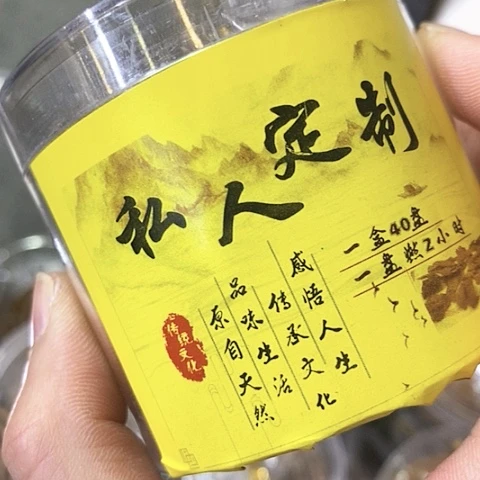 私人定制
一盒40盘
一盘燃2小时
感悟人生
传承文化
品味生活
原自天然
传统文化